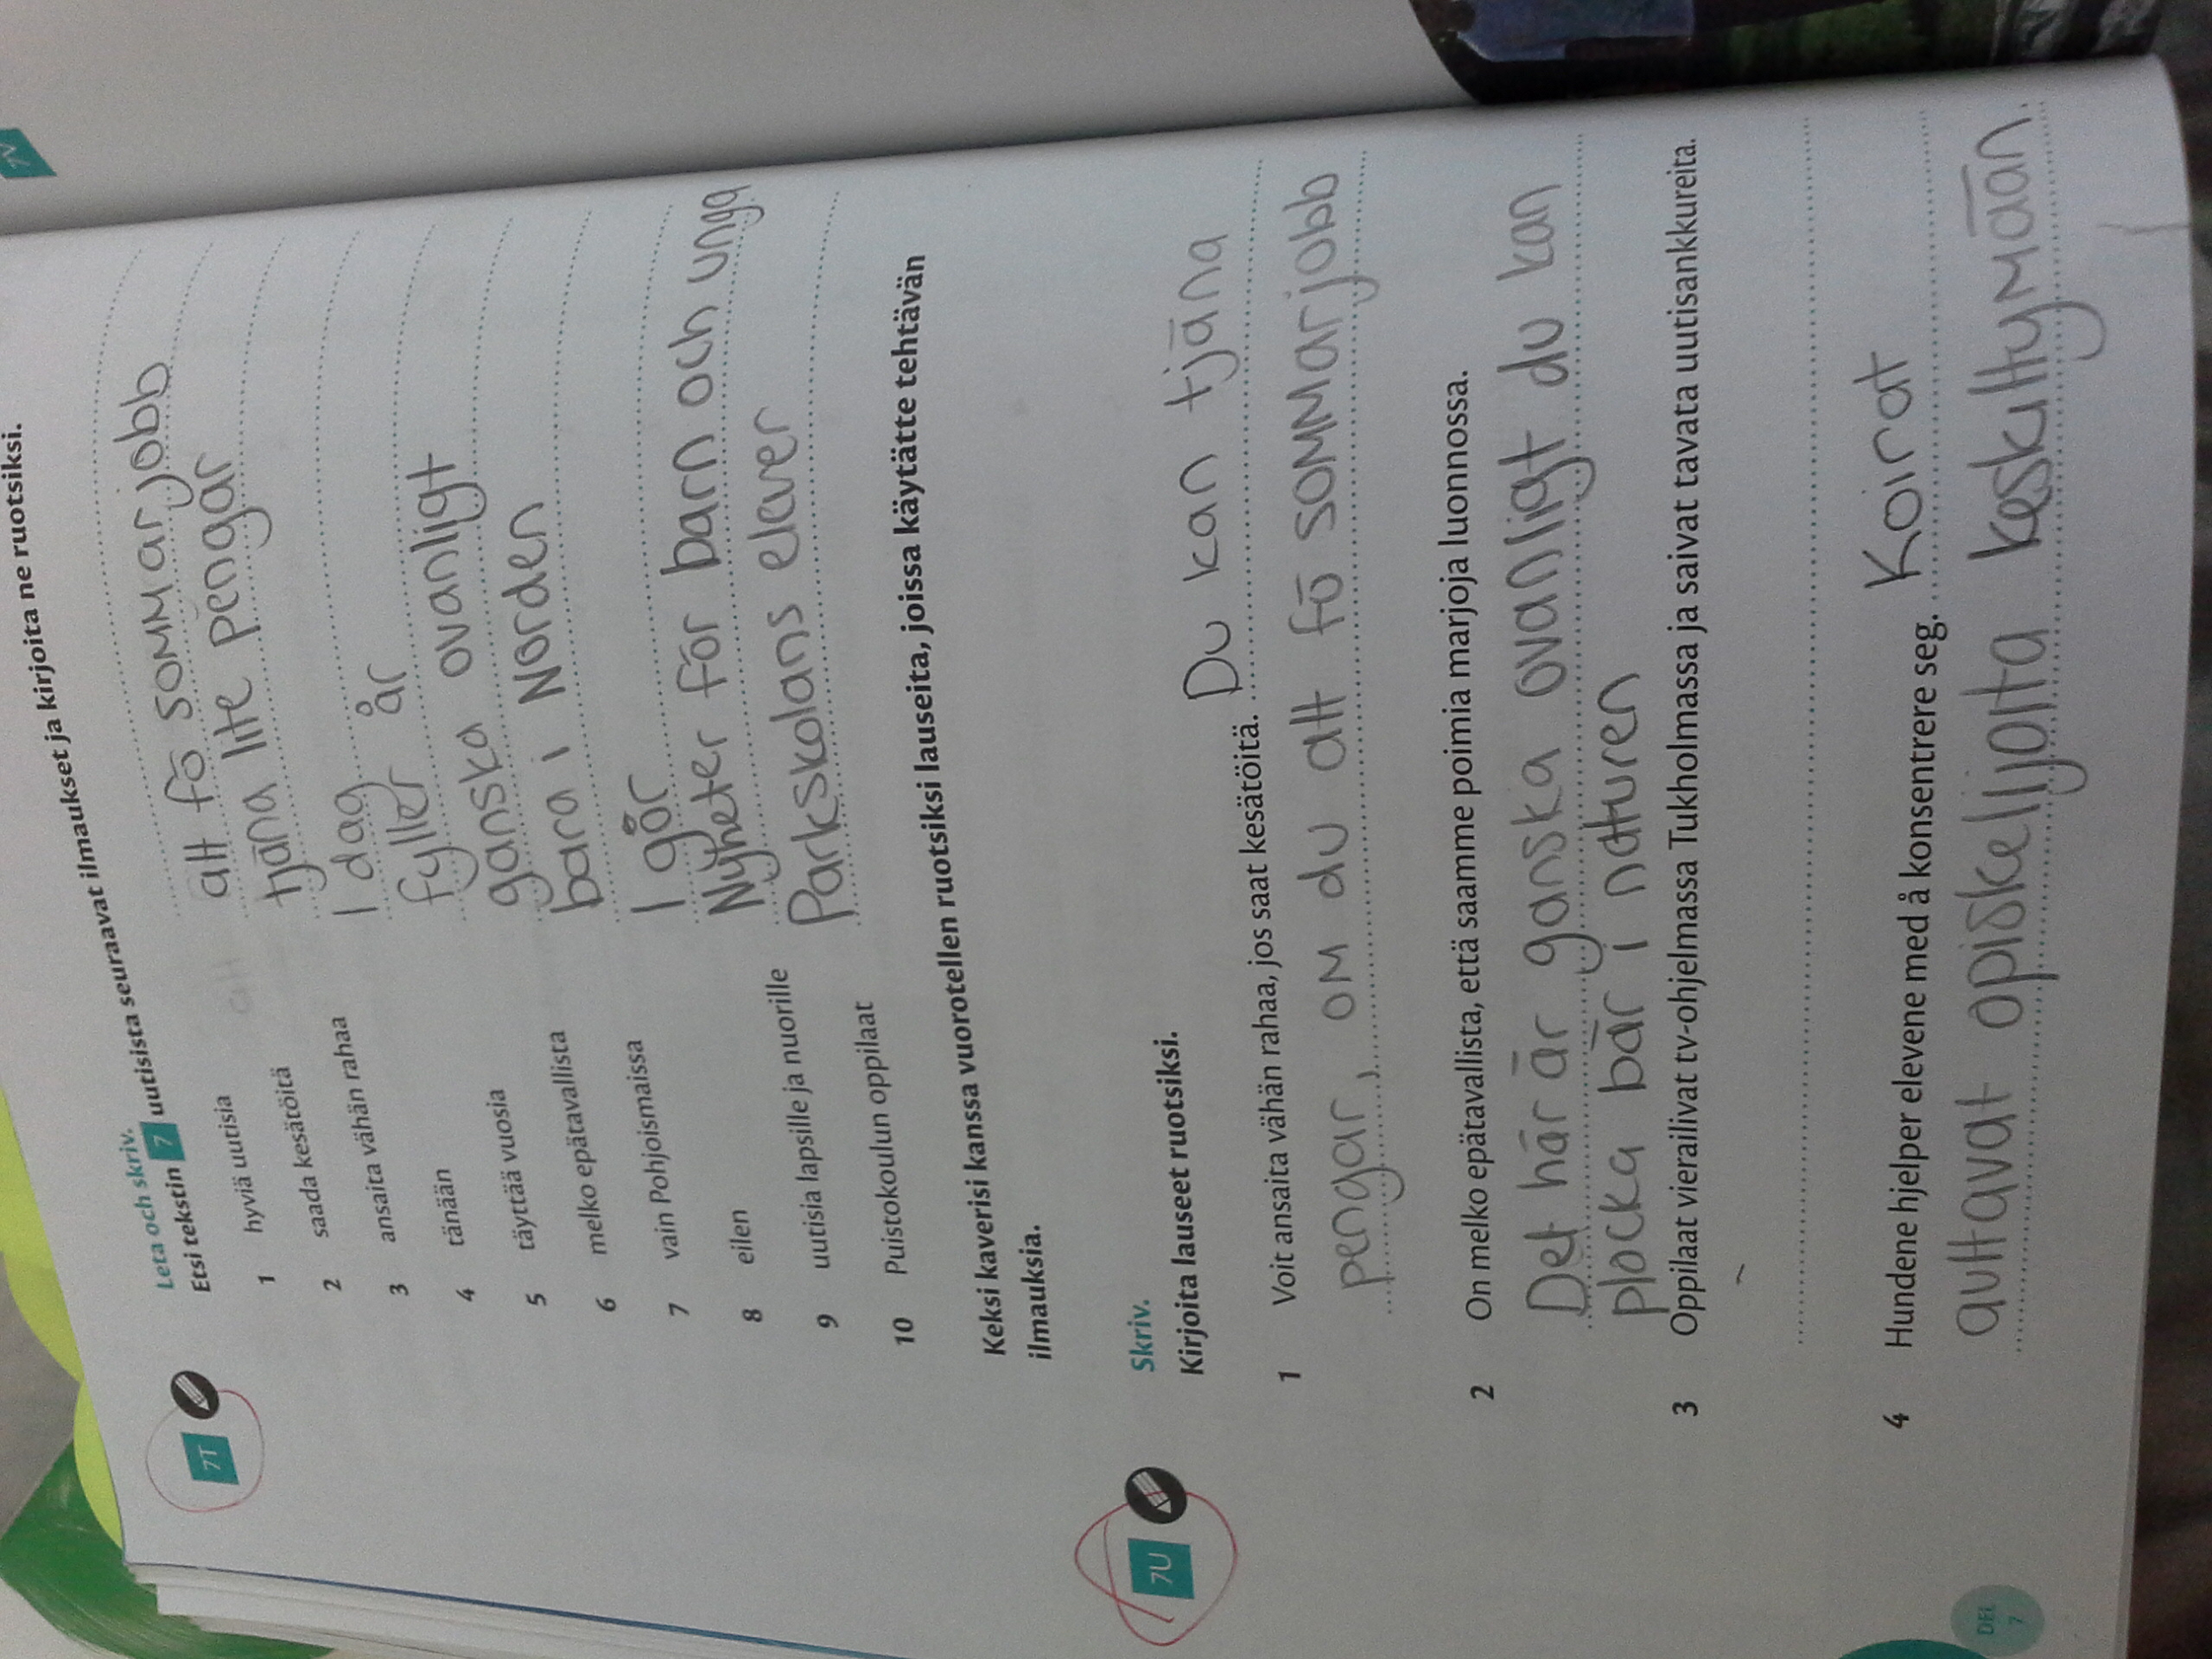 7V
Leta och skriv.
Etsi tekstin 7 uutisista seuraavat ilmaukset ja kirjoita ne ruotsiksi.
7T
1 hyviä uutisia
2 saada kesätöitä att fō sommarjobb
3 ansaita vähän rahaa tjäna lite pengar
4 tänään I dag
5 täyttää vuosia fyller år
6 melko epätavallista ganska ovanligt
7 vain Pohjoismaissa bara i Norden
8 eilen I går
9 uutisia lapsille ja nuorille Nyheter för barn och unga
10 Puistokoulun oppilaat Parkskolans elever
Keksi kaverisi kanssa vuorotellen ruotsiksi lauseita, joissa käytätte tehtävän
ilmauksia.
7U
Skriv.
Kirjoita lauseet ruotsiksi.
1 Voit ansaita vähän rahaa, jos saat kesätöitä. Du kan tjäna
pengar, om du att fō sommarjobb
2 On melko epätavallista, että saamme poimia marjoja luonnossa.
Det här är ganska ovanligt du kan
plocka bär i naturen
3 Oppilaat vierailivat tv-ohjelmassa Tukholmassa ja saivat tavata uutisankkureita.
4 Hundene hjelper elevene med å konsentrere seg. Koirat
auttavat opiskelijoita keskittymään.
DEL
7